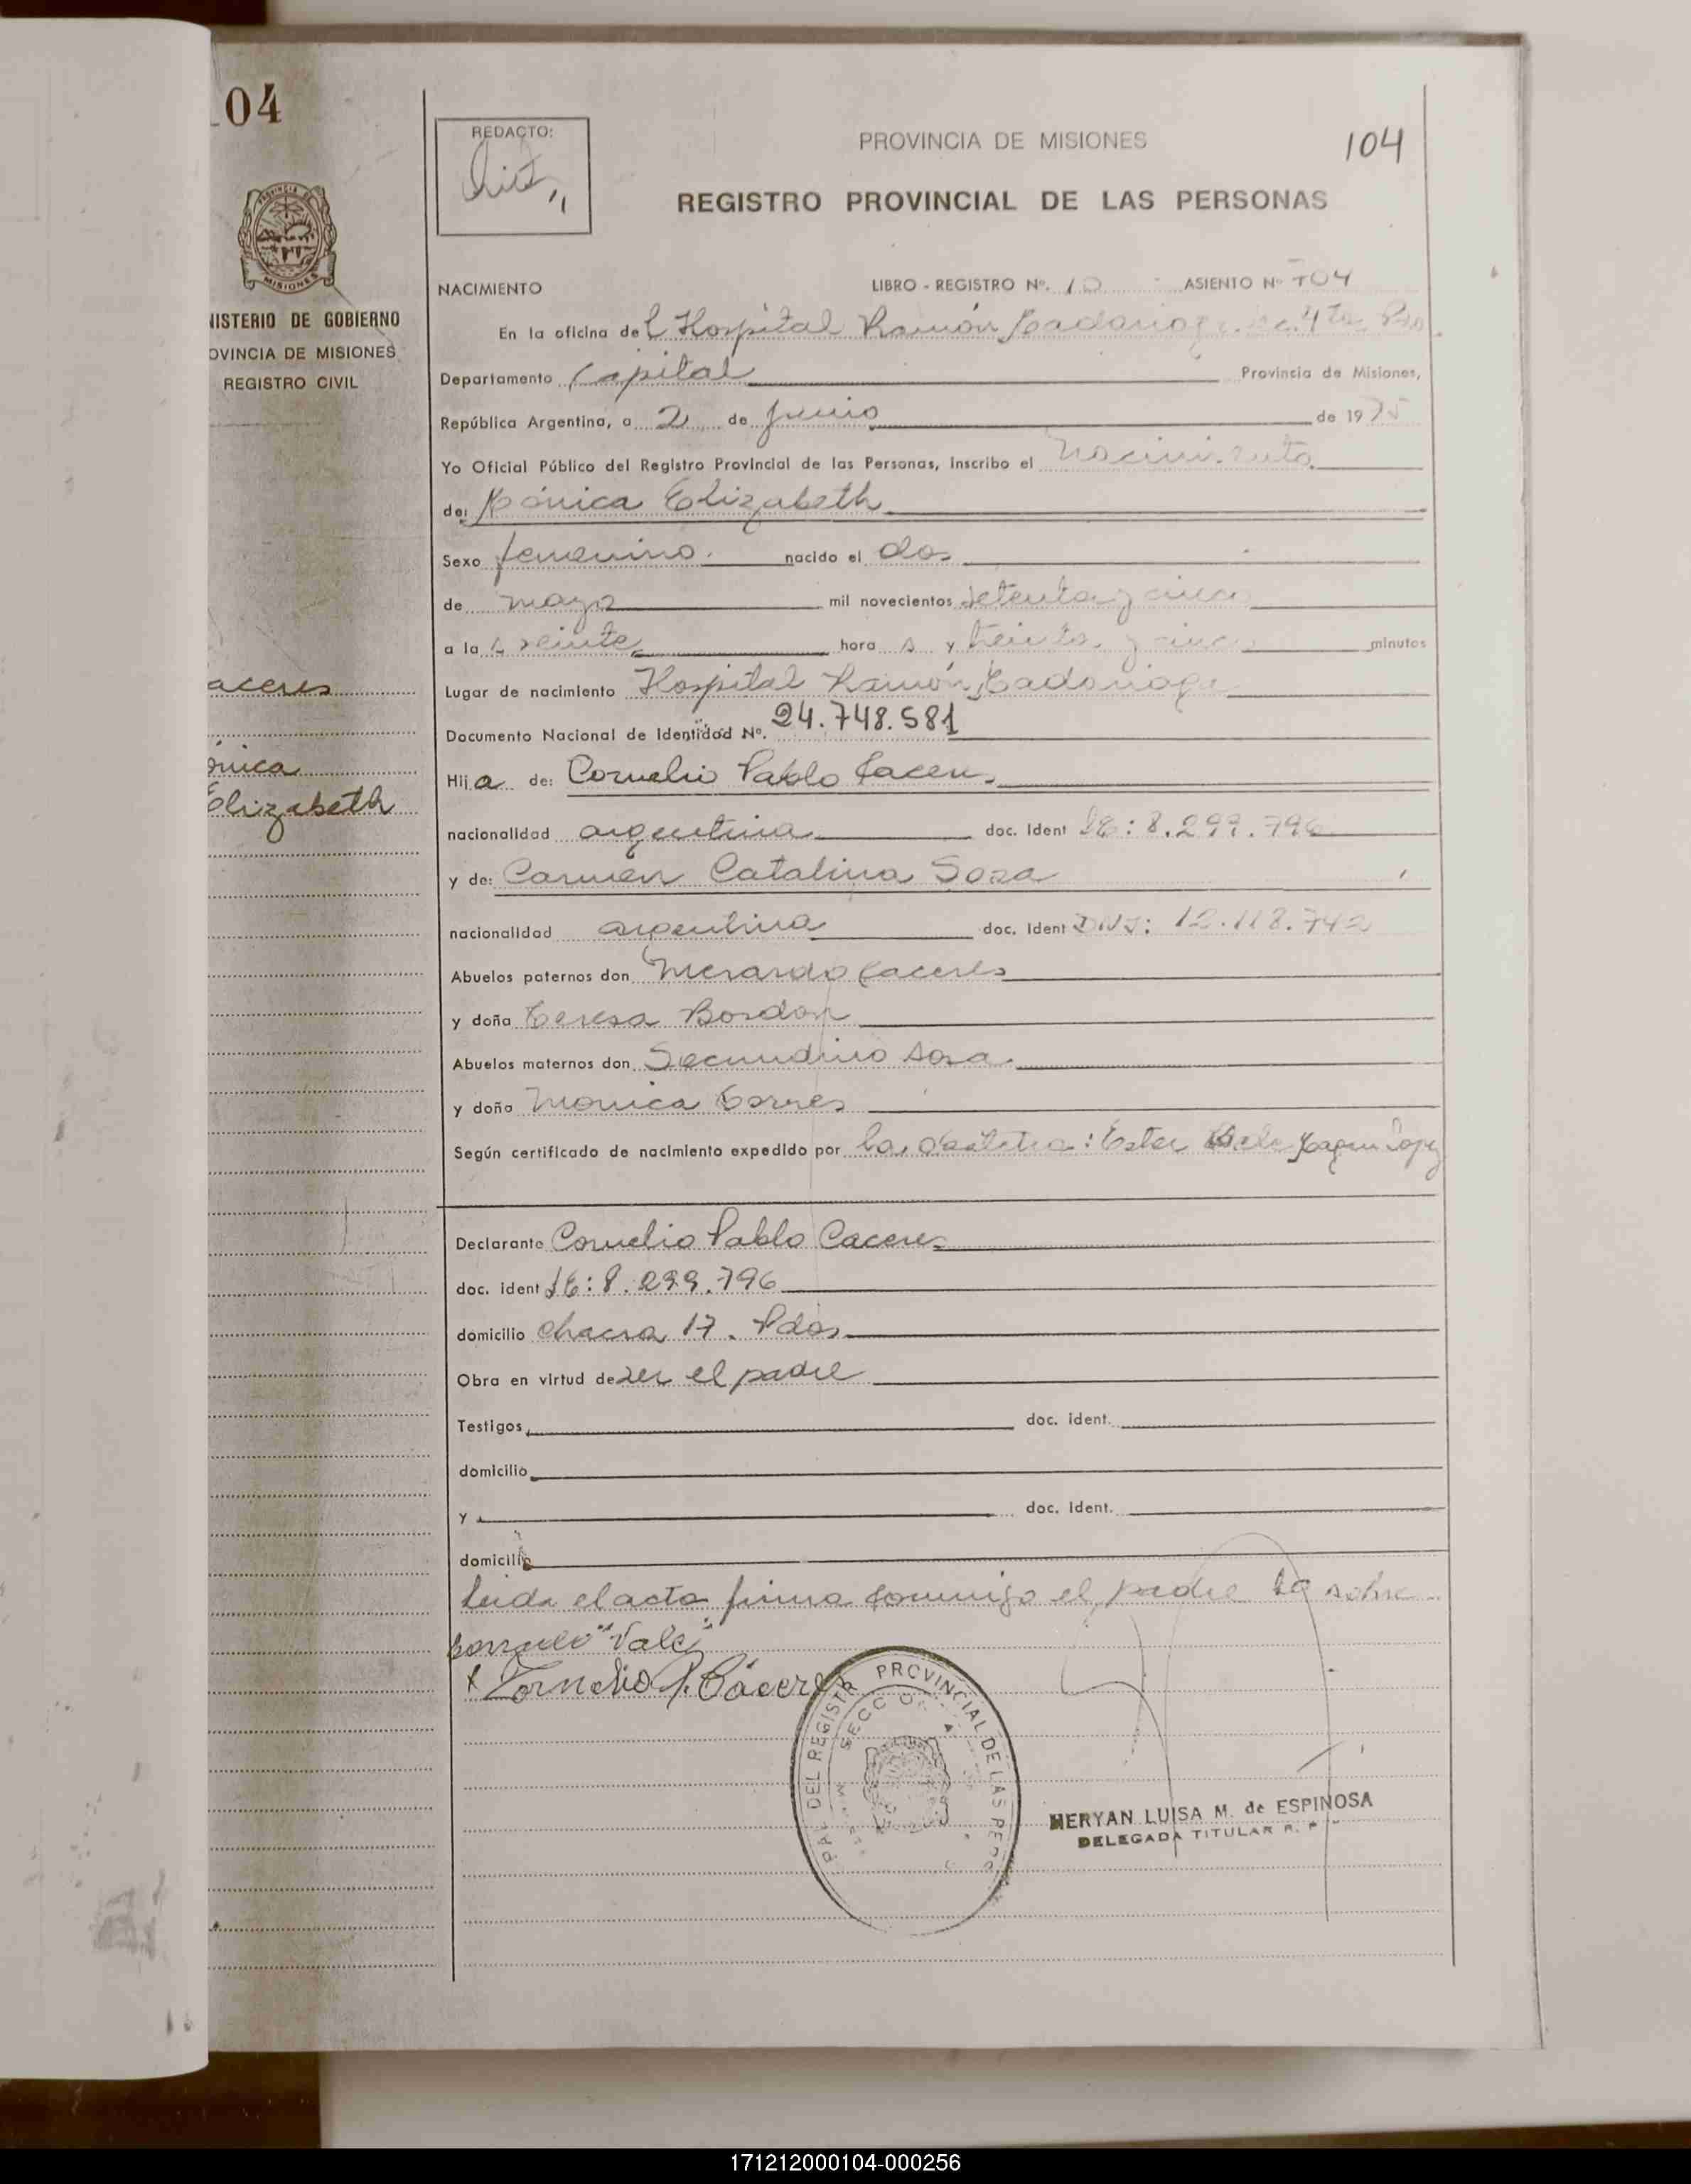 04
MISIONES
NISTERIO DE GOBIERNO
OVINCIA DE MISIONES
REGISTRO CIVIL
aceres
ónica
Elizabeth
REDACTO:
PROVINCIA DE MISIONES
104
REGISTRO PROVINCIAL DE LAS PERSONAS
NACIMIENTO LIBRO - REGISTRO Nº. 10 ASIENTO Nº 704
En la oficina del Hospital Ramón Madariaga 4ta
Departamento Capital Provincia de Misiones,
República Argentina, a 2 de junio de 1975
Yo Oficial Público del Registro Provincial de las Personas, inscribo el nacimiento
de: Mónica Elizabeth
Sexo femenino. nacido el dos
de mayo mil novecientos setenta y cinco
a las veinte hora s y treinta y cinco minutos
Lugar de nacimiento Hospital Ramón Madariaga
Documento Nacional de Identidad Nº. 24.748.581
Hija de: Cornelio Pablo Caceres
nacionalidad argentina doc. ident LE: 8.299.796
y de: Carmen Catalina Sosa
nacionalidad argentina doc. ident DNI: 12.118.742
Abuelos paternos don Merardo Caceres
y doña Teresa Bordon
Abuelos maternos don Secundino Sosa
y doña Monica Torres
Según certificado de nacimiento expedido por La obstetra: Ester
Declarante Cornelio Pablo Caceres
doc. ident LE: 8.299.796
domicilio chacra 17. Pdas
Obra en virtud de ser el padre
Testigos doc. ident.
domicilio
y doc. ident.
domicilio
Leida el acta firma conmigo el padre sobre
borrado "Vale"
x Cornelio P. Cáceres
DEL REGISTR PROVINCIAL DE LAS PERS
SECC
MERYAN LUISA M. de ESPINOSA
DELEGADA TITULAR R. P
171212000104-000256